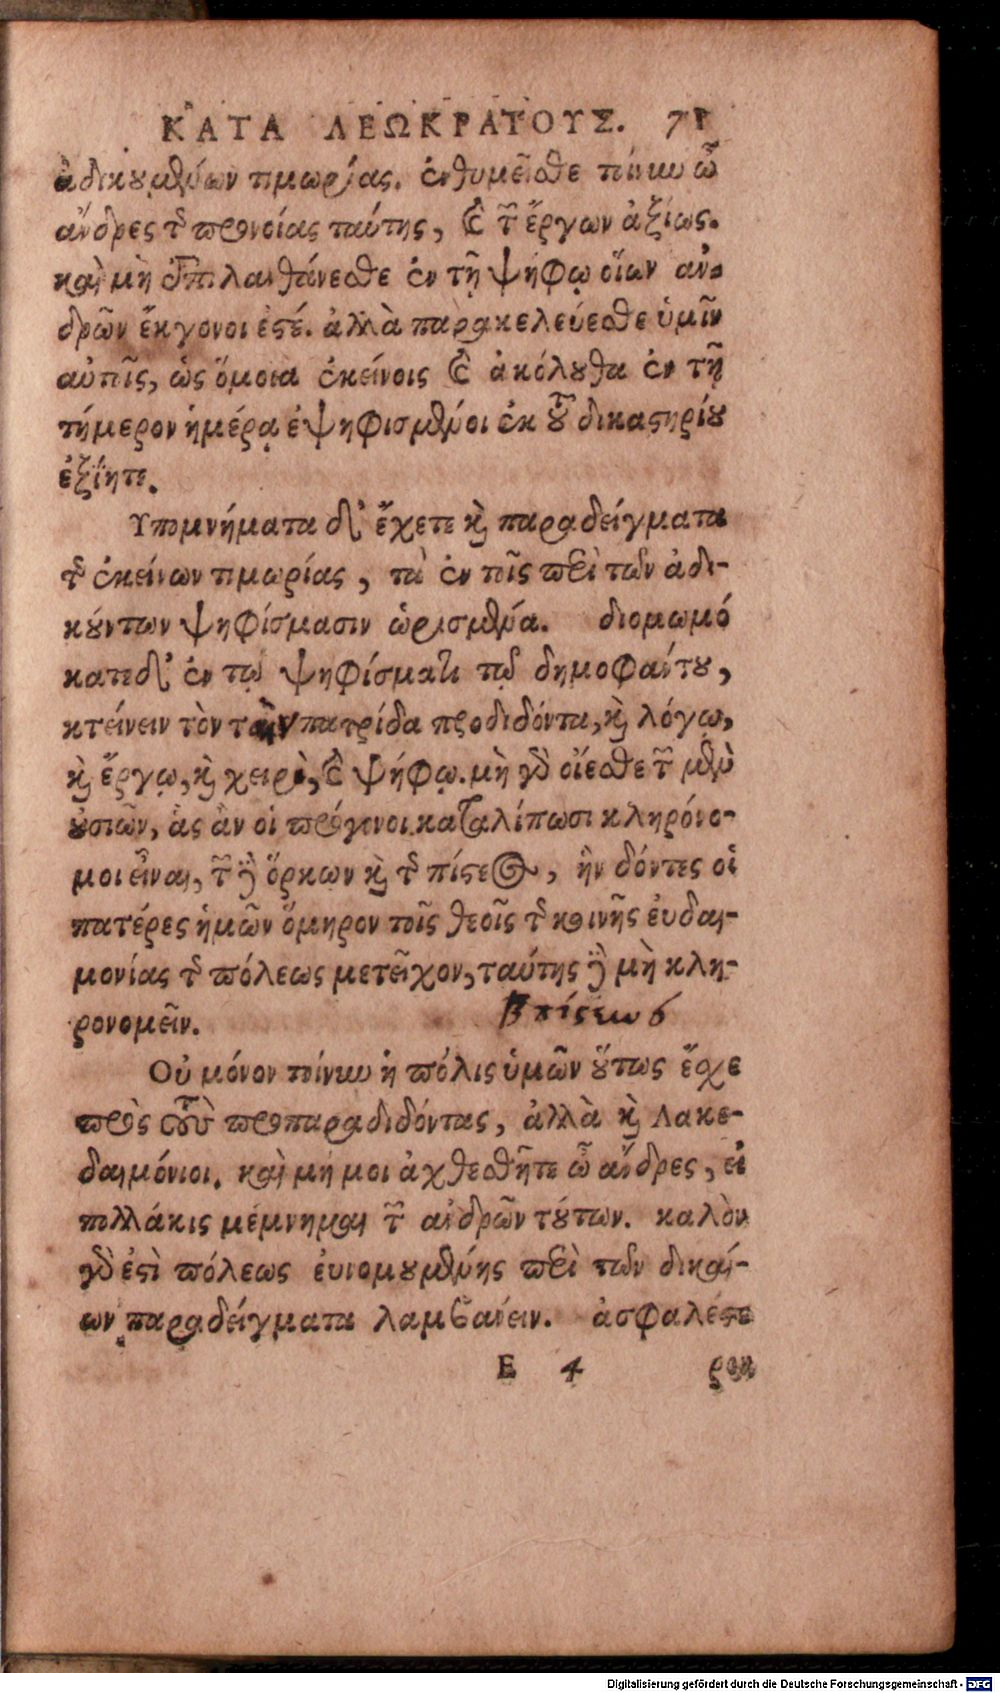 ΚΑΤΑ ΛΕΩΚΡΑΤΟΥΣ. 71
ἀδικουμένων τιμωρίας. ἐνθυμεῖσθε τοίνυν ὦ
ἄνδρες τῆς προνοίας ταύτης, καὶ τῶν ἔργων ἀξίως.
καὶ μὴ ἐπιλανθάνεσθε ἐν τῇ ψήφῳ οἵων ἀν-
δρῶν ἔκγονοι ἐστέ. ἀλλὰ παρακελεύεσθε ὑμῖν
αὐτοῖς, ὡς ὅμοια ἐκείνοις καὶ ἀκόλουθα ἐν τῇ
τήμερον ἡμέρᾳ ἐψηφισμένοι ἐκ τοῦ δικαστηρίου
ἐξίητε.
Υπομνήματα δ' ἔχετε καὶ παραδείγματα
τῆς ἐκείνων τιμωρίας, τὰ ἐν τοῖς περὶ τῶν ἀδι-
κούντων ψηφίσμασιν ὡρισμένα. διομωμό
κατε δ' ἐν τῷ ψηφίσματι τῷ δημοφάντου,
κτείνειν τὸν τὴν πατρίδα προδιδόντα, καὶ λόγῳ,
καὶ ἔργῳ, καὶ χειρὶ, καὶ ψήφῳ. μὴ γὰρ οἴεσθε τῶν μὲν
οὐσιῶν, ἃς ἂν οἱ πρόγονοι καταλίπωσι κληρόνο-
μοι εἶναι, τῶν δὲ ὅρκων καὶ τῆς πίστεως, ἣν δόντες οἱ
πατέρες ἡμῶν ὅμηρον τοῖς θεοῖς τῆς κοινῆς εὐδαι-
μονίας τῆς πόλεως μετεῖχον, ταύτης δὲ μὴ κλη-
ρονομεῖν.
Οὐ μόνον τοίνυν ἡ πόλις ὑμῶν οὕτως ἔσχε
πρὸς τοὺς προπαραδιδόντας, ἀλλὰ καὶ Λακε-
δαιμόνιοι. καὶ μή μοι ἀχθεσθῆτε ὦ ἄνδρες, εἰ
πολλάκις μέμνημαι τῶν ἀνδρῶν τούτων. καλὸν
γάρ ἐστι πόλεως εὐνομουμένης περὶ τῶν δικαί-
ων παραδείγματα λαμβάνειν. ἀσφαλέστε
Ε 4 ρον